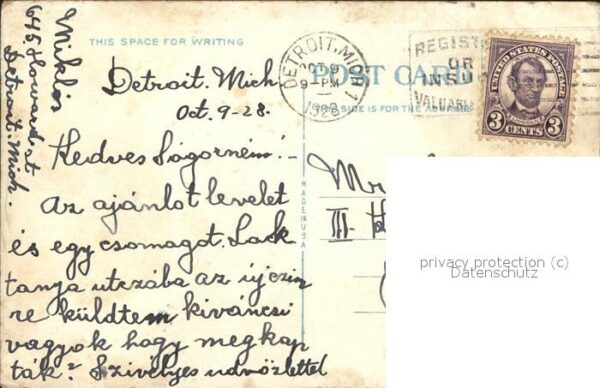 Miklós
645. Howard. st
Detroit. Mich.
THIS SPACE FOR WRITING
Detroit. Mich
Oct. 9-28.
Kedves Sógorném!-
Az ajánlot levelet
és egy csomagot. Lack
tanja utczába az
re küldtem kiváncsi
vagyok hogy megkap
ták? Szivélyes udvözlettel
MADE IN USA
DETROIT, MICH. 1
OCT 9
9 - PM
1928
REGIST
OR
INSU
VALUABL
POST CARD
THIS SIDE IS FOR THE ADDRESS
UNITED STATES POSTAGE
LINCOLN
3 CENTS 3
Mr
III-
privacy protection (c)
Datenschutz